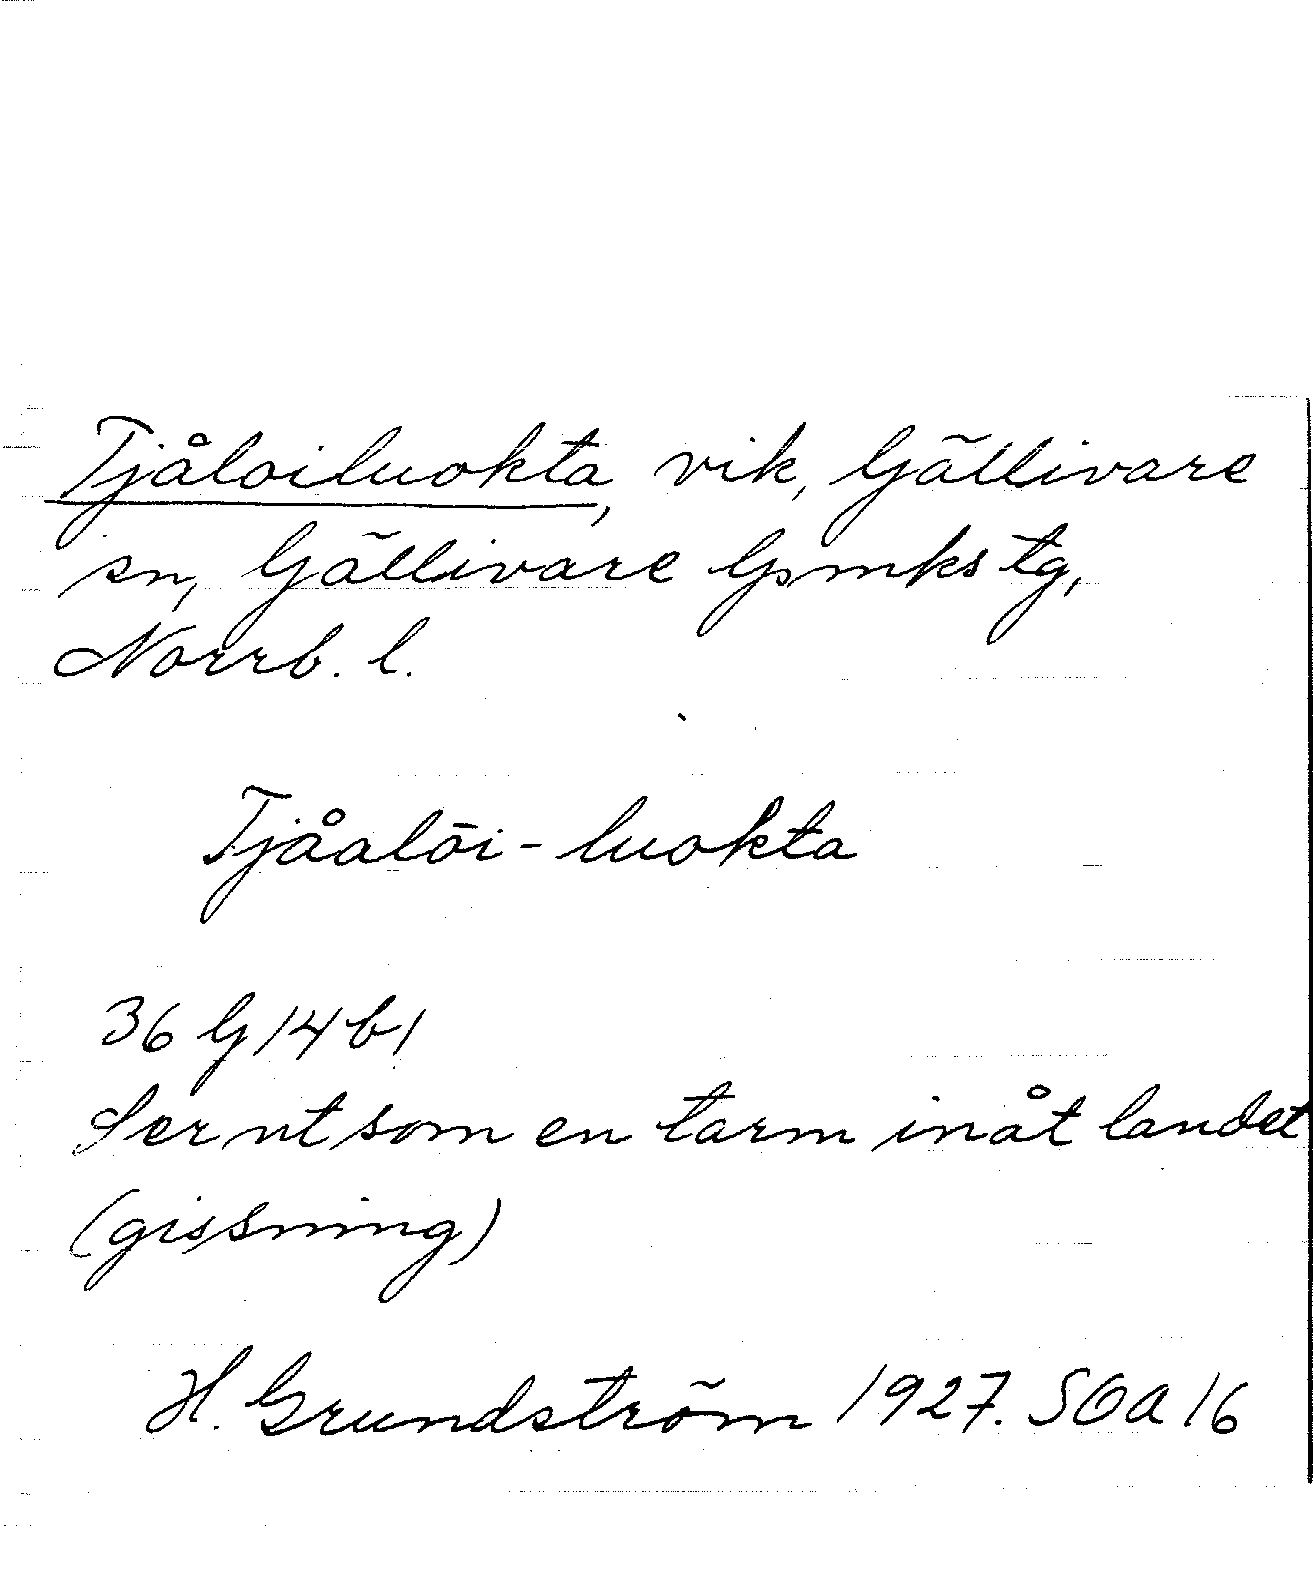 Tjåloiluokta, vik, Gällivare
sn, Gällivare Gsmks tg,
Norrb. l.
Tjåalōi-luokta
36 G 14 b 1
Ser ut som en tarm inåt landet
(gissning)
H. Grundström 1927. SOA 16